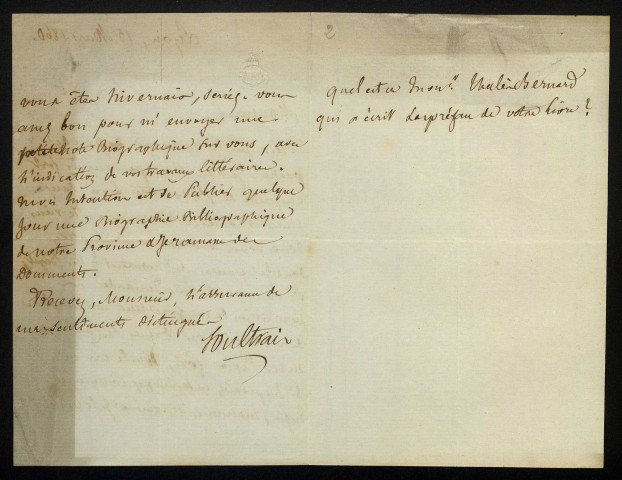 vous êtes Nivernais, seriez-vous
assez bon pour m'envoyer une
petite note Biographique sur vous, avec
l'indication de vos travaux littéraires.
mon Intention est de Publier quelque
Jour une Biographie Bibliographique
de notre Province et Je ramasse des
Documents.
Recevez, Monsieur, l'assurance de
mes sentiments distingués
Soultrait
2
quel est ce Monr. Thalès Bernard
qui a écrit la préface de votre livre?